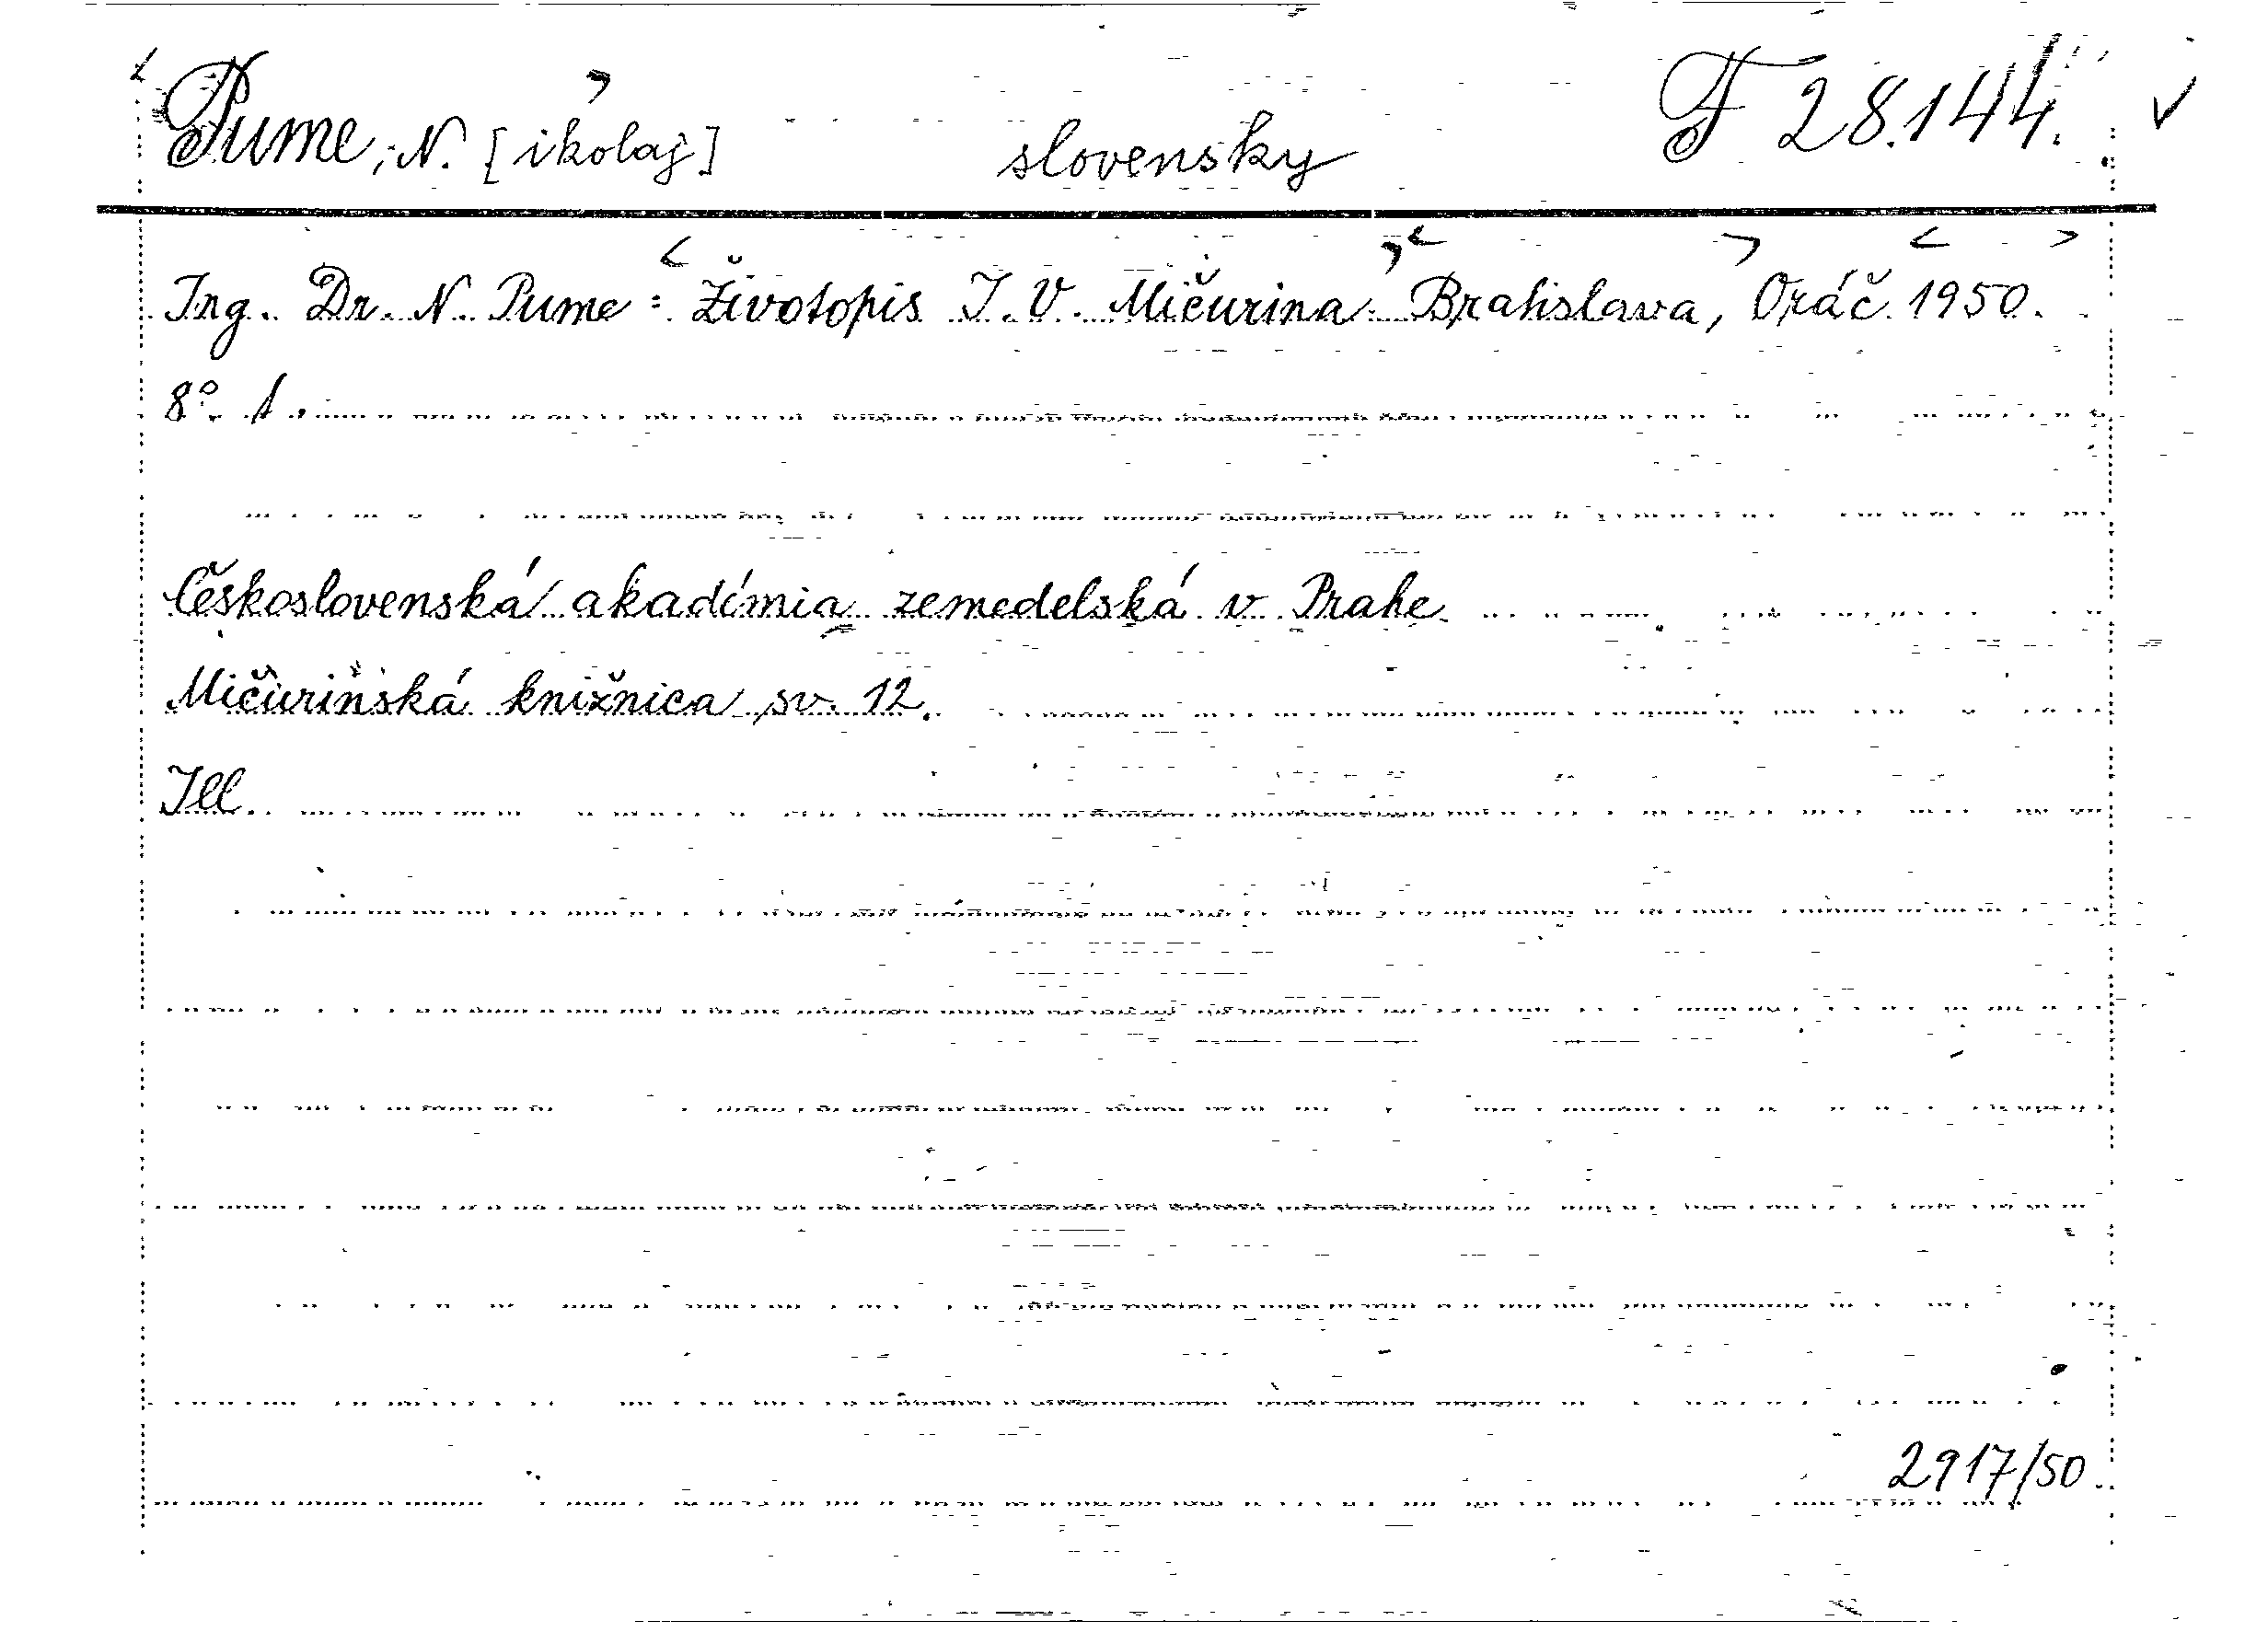 Pume, N. [ikolaj] slovensky F 28.144.
Ing. Dr. N. Pume: Životopis I. V. Mičurina. Bratislava, Oráč 1950.
8°. 1.
Československá akadémia zemedelská v Prahe.
Mičurinská knižnica sv. 12.
Ill.
2917/50.